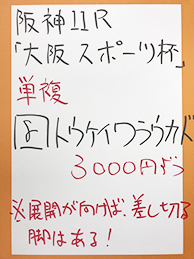 阪神11R
「大阪スポーツ杯」
単複
8トウケイワラウカド
3000円づつ
※展開が向けば、差し切る
脚はある！